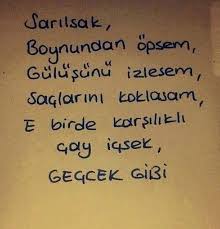 Sarılsak,
Boynundan öpsem,
Gülüşünü izlesem,
Saçlarını koklasam,
E birde karşılıklı
çay içsek,
GEÇCEK GİBİ